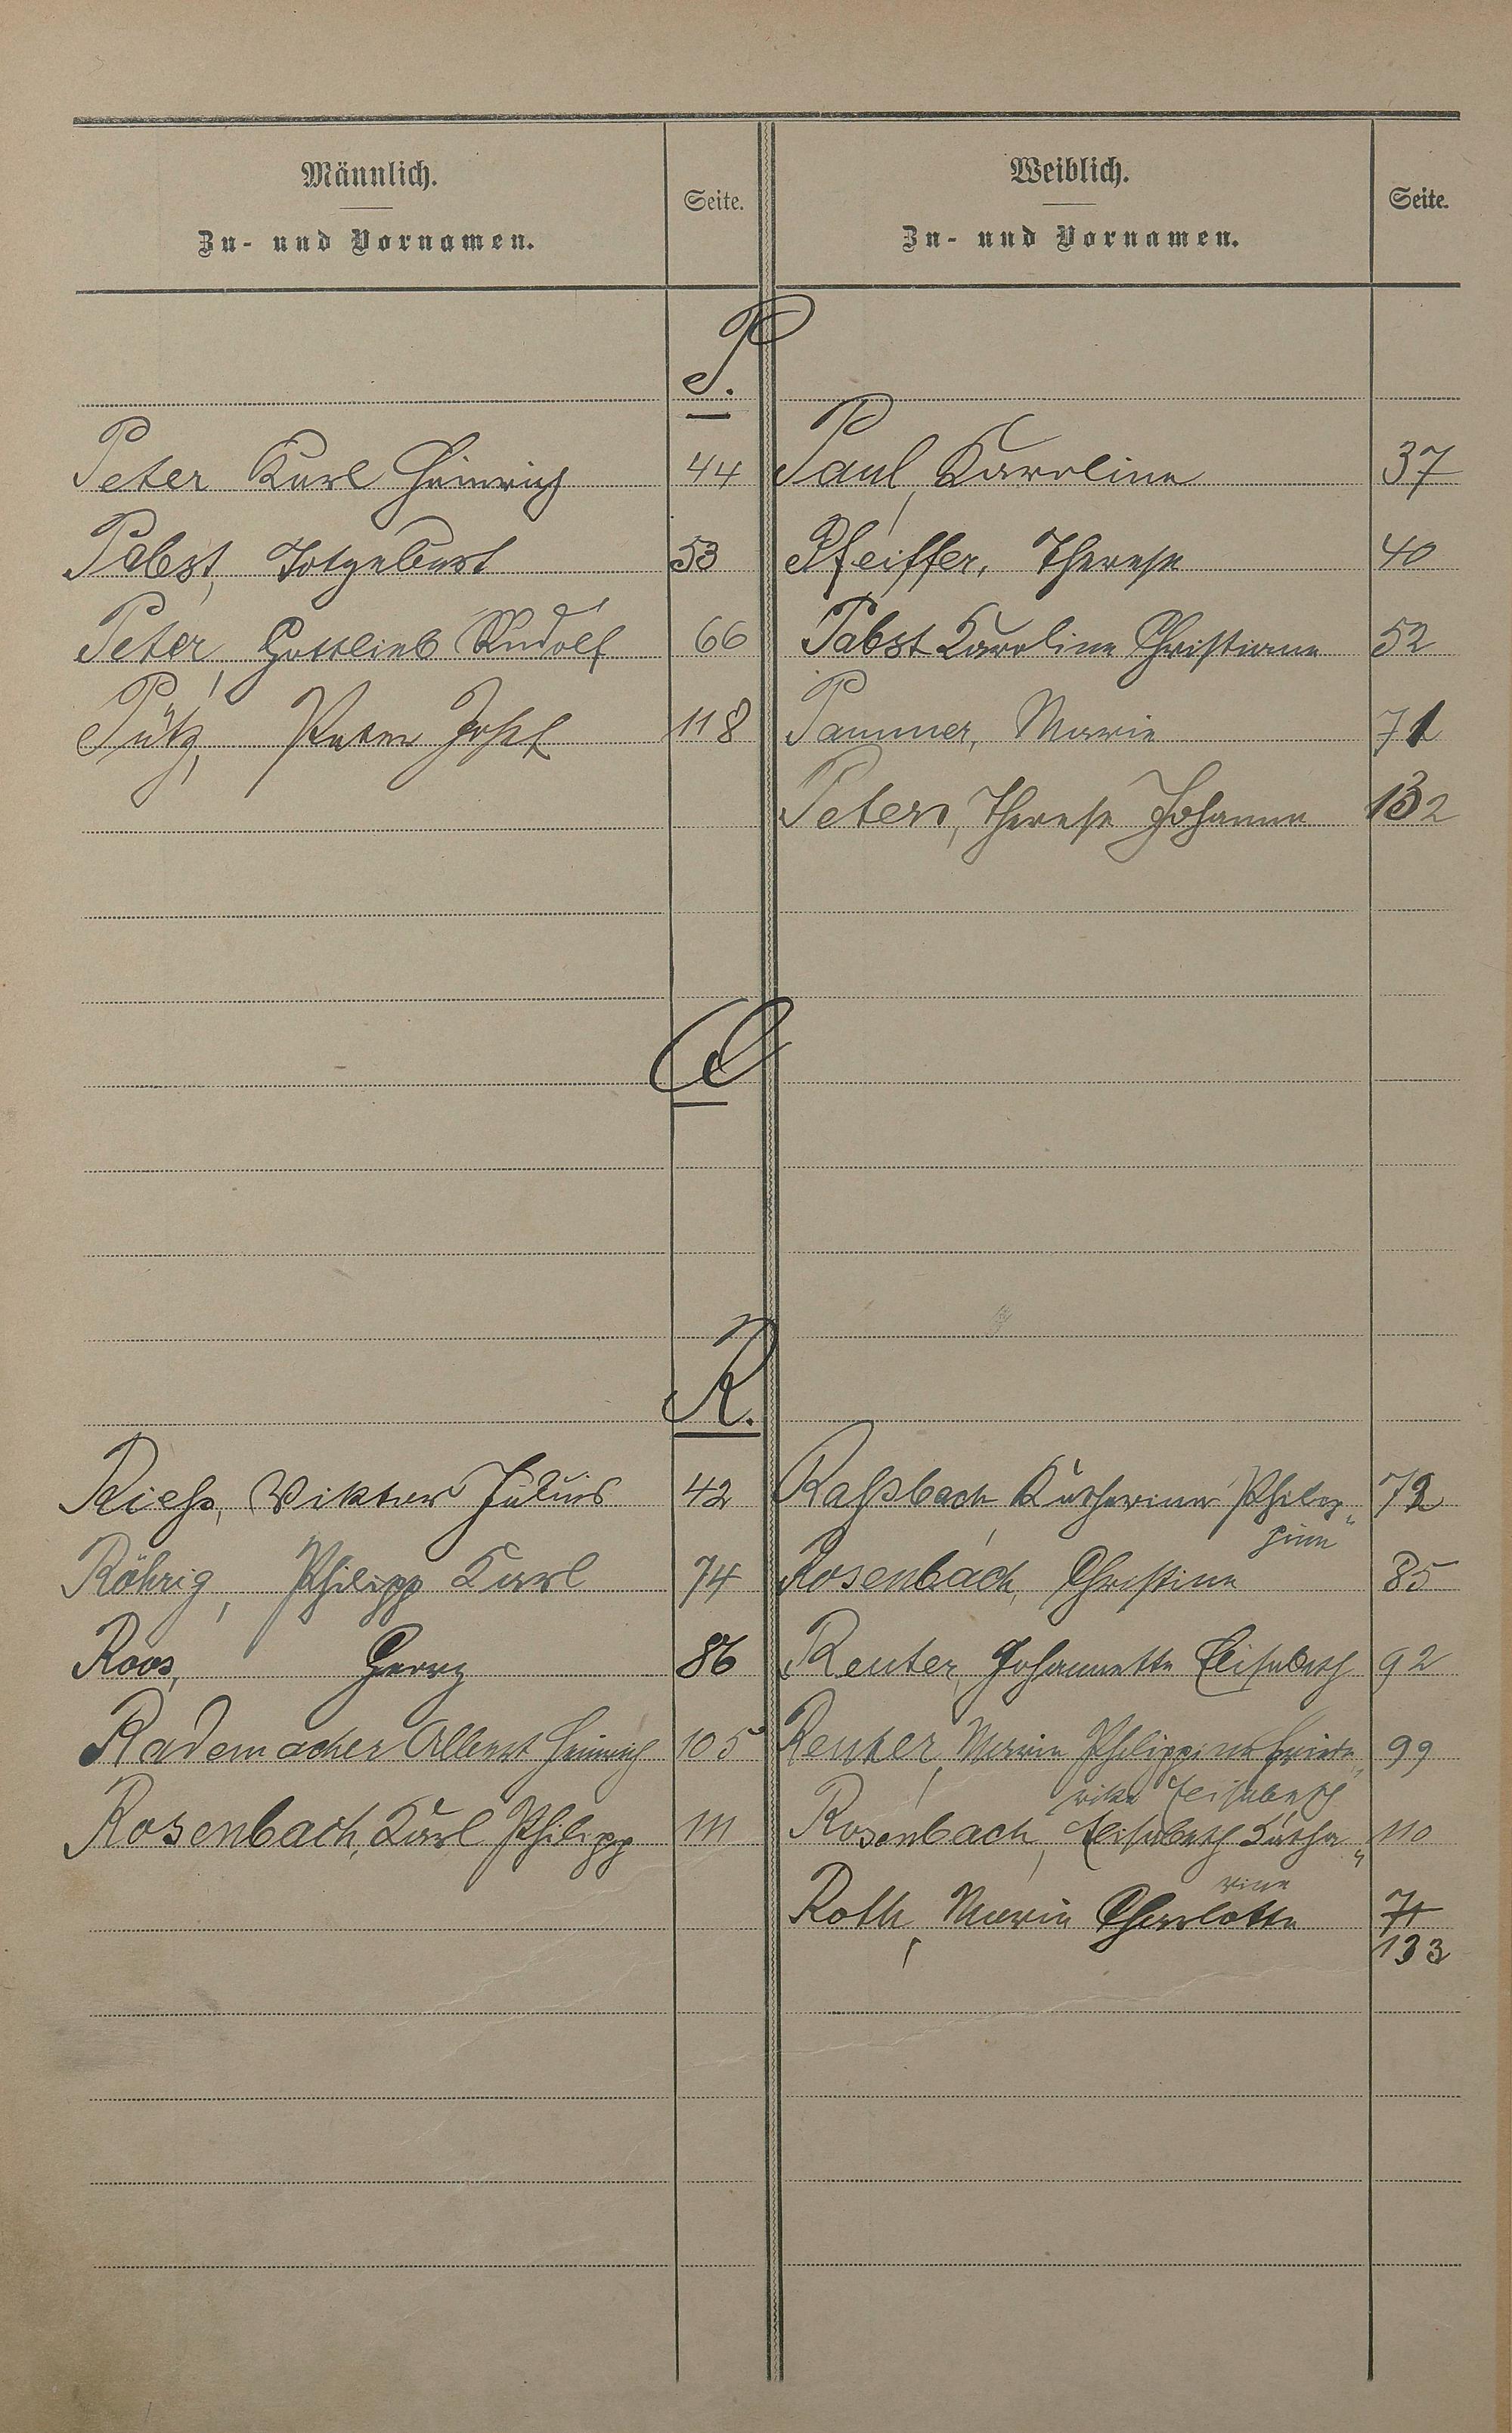 Männlich.
Zu- und Vornamen.
Seite.
Weiblich.
Zu- und Vornamen.
Seite.
P.
Peter Karl Heinrich 44
Paul, Karoline 37
Pabst, Totgeburt 53
Pfeiffer, Therese 40
Peter, Gottlieb Rudolf 66
Pabst Karoline Christiane 52
Pütz, Peter Josef 118
Pammer, Marie 71
Peters, Therese Johanna 132
Q
R.
Rieß, Viktor Julius 42
Raßbach Katharina Philip„ 72
pine
Röhrig, Philipp Karl 74
Rosenbach, Christine 85
Roos, Georg 86
Reuter, Johannette Elisabeth 92
Rademacher Albert Heinrich 105
Reuter, Marie Philippine Friede„ 99
rike Elisabeth
Rosenbach, Karl Philipp 111
Rosenbach, Elisabeth Katha„ 110
rine
Roth, Marie Charlotte 71
133